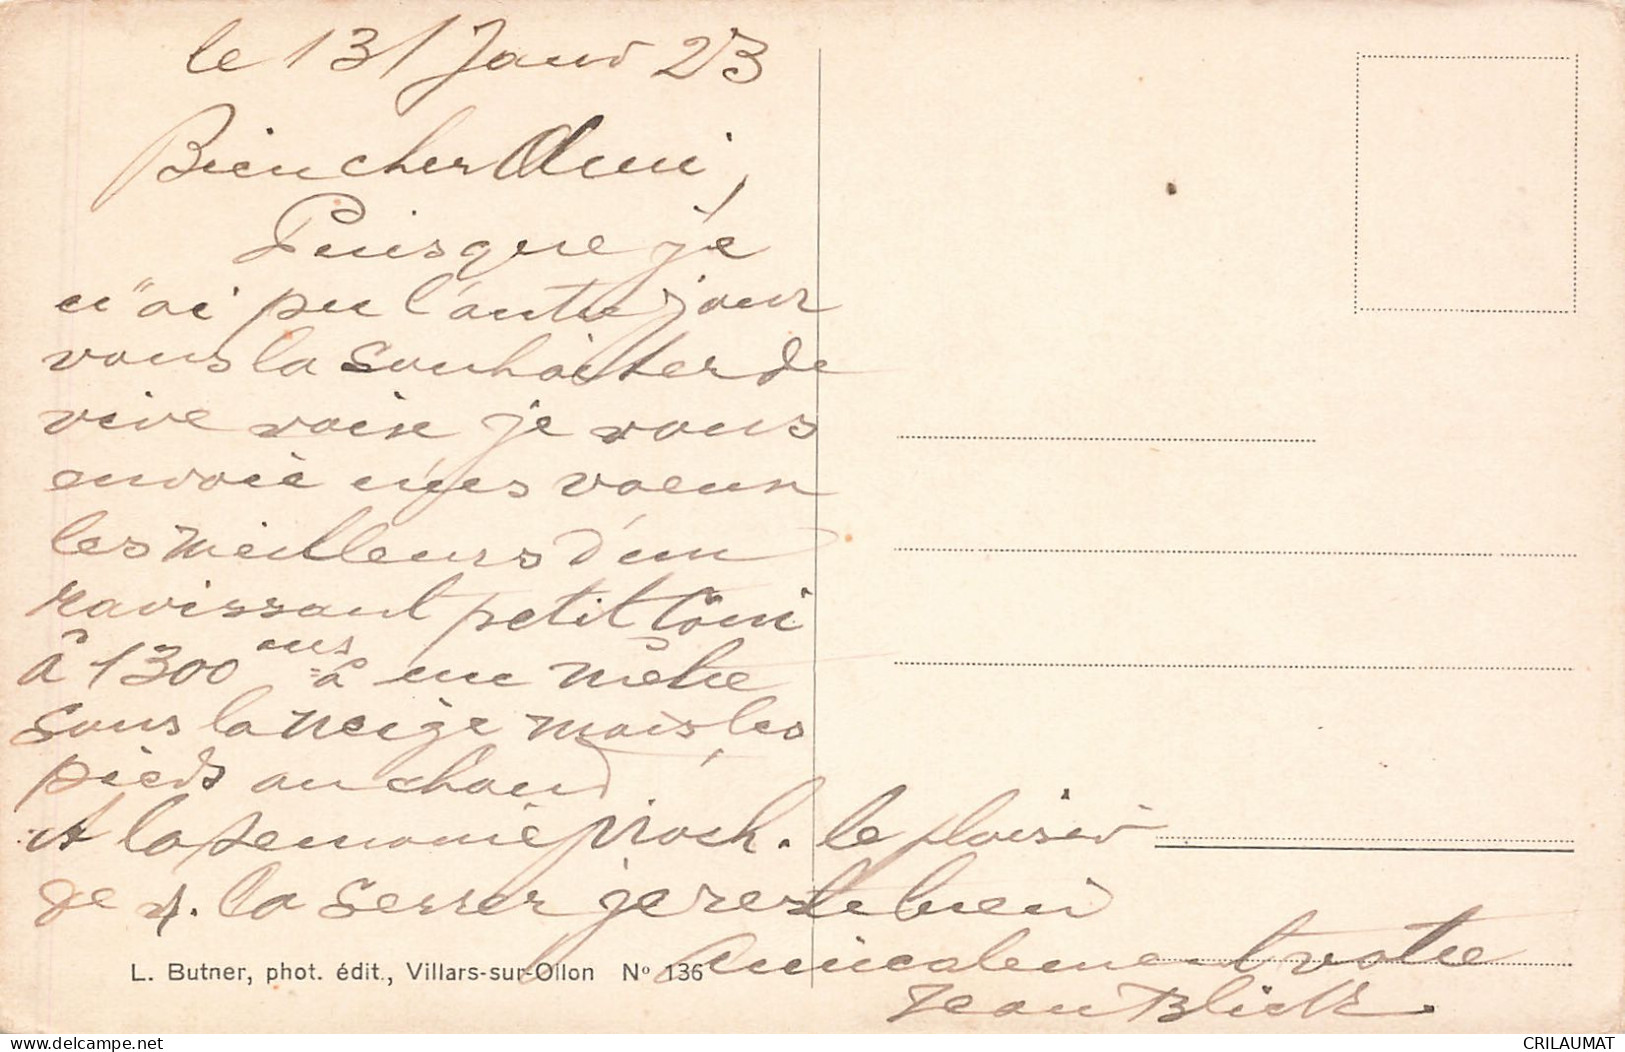 le 13 / Janv 23
Bien cher Ami,
Puisque je
n'ai pu l'autre jour
vous la souhaiter de
vive voix je vous
envoie mes voeux
les meilleurs d'un
ravissant petit coin
à 1300 à un mètre
sous la neige mais les
pieds au chaud
A la semaine proch. le plaisir
de v. la serrer je reste bien
amicalement votre
Jean Blick.
L. Butner, phot. édit., Villars-sur-Ollon Nº 136
delcampe.net
CRILAUMAT